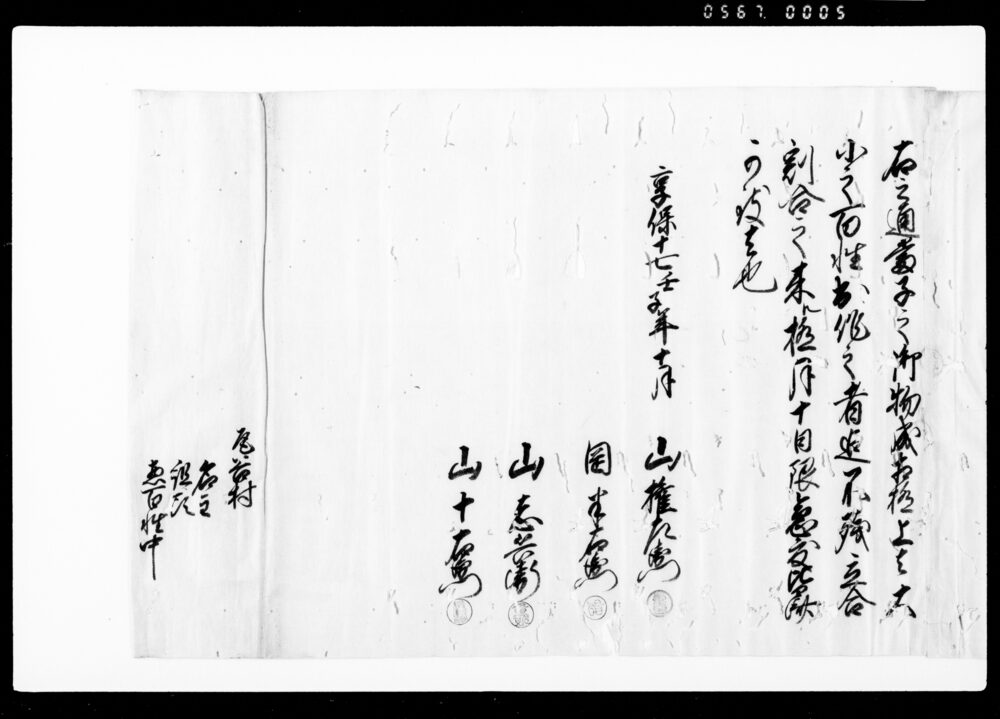 0567. 0005
右之通当子之御物成相極上者大
小之百姓出作之者迄不残立合
割合之来ル極月十日限急度皆済
可致者也
享保十七壬子年十月
山権右衛門
岡半右衛門
山志兵衛
山十右衛門
村
名主
組頭
惣百姓中